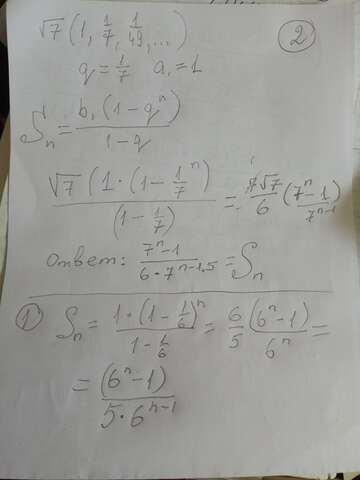 √7 (1, 1/7, 1/49, ...)
②
q = 1/7 a₁ = 1
Sₙ = b₁(1 - qⁿ) / 1 - q
√7 (1·(1 - 1/7ⁿ) / (1 - 1/7) = 7√7/6 (7ⁿ - 1 / 7ⁿ⁻¹
Ответ: 7ⁿ - 1 / 6·7ⁿ⁻¹·⁵ = Sₙ
① Sₙ = 1·(1 - 1/6)ⁿ / 1 - 1/6 = 6/5 (6ⁿ - 1) / 6ⁿ =
= (6ⁿ - 1) / 5·6ⁿ⁻¹